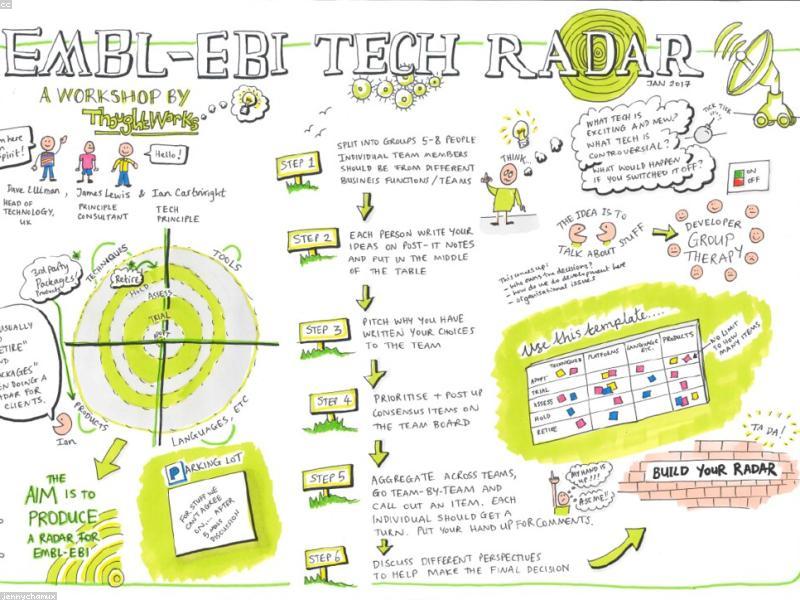 cc
EMBL-EBI TECH RADAR
JAN 2017
A WORKSHOP BY
ThoughtWorks
Hello!
Dave Elliman,
HEAD OF
TECHNOLOGY,
UK
James Lewis &
PRINCIPLE
CONSULTANT
Ian Cartwright
TECH
PRINCIPLE
3rd Party
Packages?
Products?
TECHNIQUES
TOOLS
Retire
HOLD
ASSESS
TRIAL
ADOPT
PRODUCTS
LANGUAGES, ETC
USUALLY
"RETIRE"
AND
DOING A
RADAR FOR
CLIENTS.
Ian
THE
AIM IS TO
PRODUCE
A RADAR FOR
EMBL-EBI
PARKING LOT
FOR STUFF WE
CAN'T AGREE
ON... AFTER
5 MINS
DISCUSSION
STEP 1
SPLIT INTO GROUPS 5-8 PEOPLE
INDIVIDUAL TEAM MEMBERS
SHOULD BE FROM DIFFERENT
BUSINESS FUNCTIONS/TEAMS
STEP 2
EACH PERSON WRITE YOUR
IDEAS ON POST-IT NOTES
AND PUT IN THE MIDDLE
OF THE TABLE
STEP 3
PITCH WHY YOU HAVE
WRITTEN YOUR CHOICES
TO THE TEAM
STEP 4
PRIORITISE + POST UP
CONSENSUS ITEMS ON
THE TEAM BOARD
STEP 5
AGGREGATE ACROSS TEAMS,
GO TEAM-BY-TEAM AND
CALL OUT AN ITEM. EACH
INDIVIDUAL SHOULD GET A
TURN. PUT YOUR HAND UP FOR COMMENTS.
STEP 6
DISCUSS DIFFERENT PERSPECTIVES
TO HELP MAKE THE FINAL DECISION
THINK...
WHAT TECH IS
EXCITING AND NEW?
WHAT TECH IS
CONTROVERSIAL?
WHAT WOULD HAPPEN
IF YOU SWITCHED IT OFF?
TICK TICK
ON
OFF
THE IDEA IS TO
TALK ABOUT STUFF
DEVELOPER
GROUP
THERAPY
This comes up:
- who owns the decisions?
- how do we do development here
- organisational issues
Use this template....
TECHNIQUES
PLATFORMS
LANGUAGE
ETC.
PRODUCTS
ADOPT
TRIAL
ASSESS
HOLD
RETIRE
NO LIMIT
TO HOW
MANY ITEMS
MY HAND IS
UP!!!
ASK ME!!
TA DA!
BUILD YOUR RADAR
jennychamux